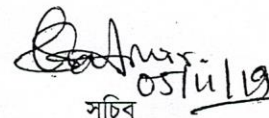 05/11/19
সচিব